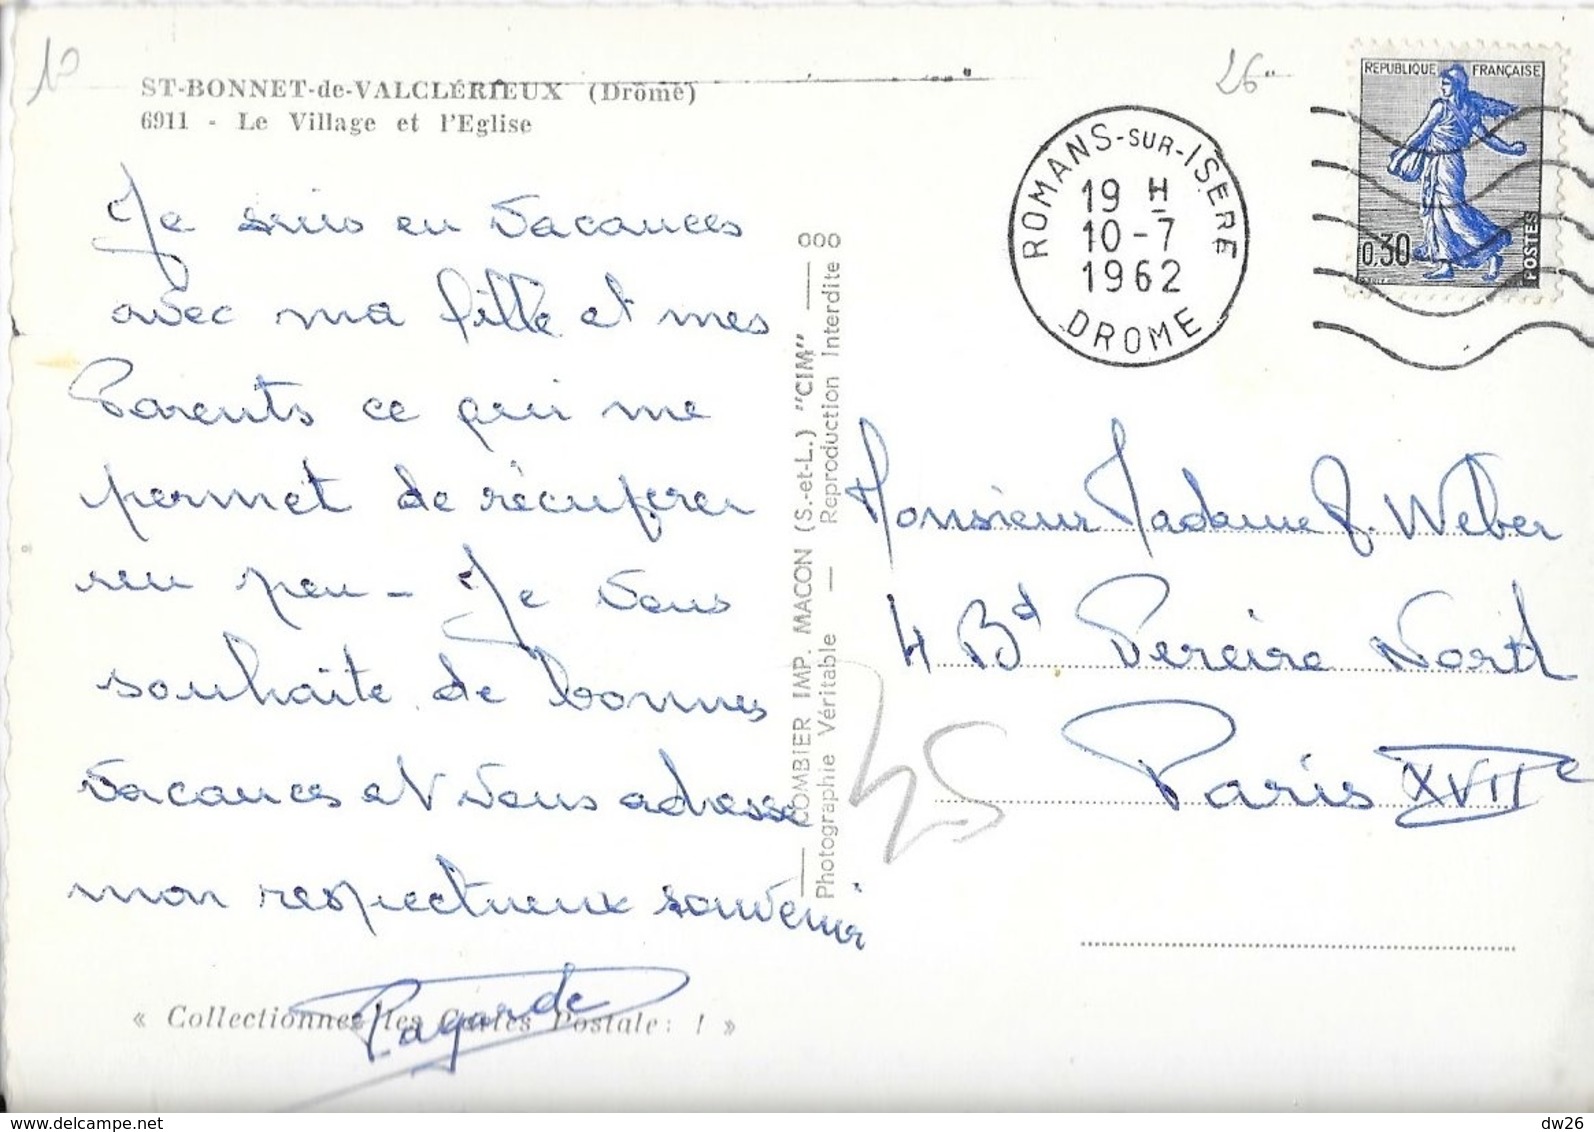 ST-BONNET-de-VALCLÉRIEUX (Drôme)
6911 - Le Village et l'Eglise
Je suis en vacances
avec ma fille et mes
Parents ce qui me
permet de récupérer
un peu - Je vous
souhaite de bonnes
vacances et vous adresse
mon respectueux souvenir
« Collectionnez les Cartes Postales ! »
COMBIER IMP. MACON (S.-et-L.) "CIM"
Photographie Véritable — Reproduction Interdite
000
26
ROMANS-SUR-ISERE
19 H
10-7
1962
DROME
REPUBLIQUE FRANÇAISE
0,30
POSTES
Monsieur Madame J. Weber
4 Bd Pereire Nord
Paris XVIIe
45
www.delcampe.net
dw26